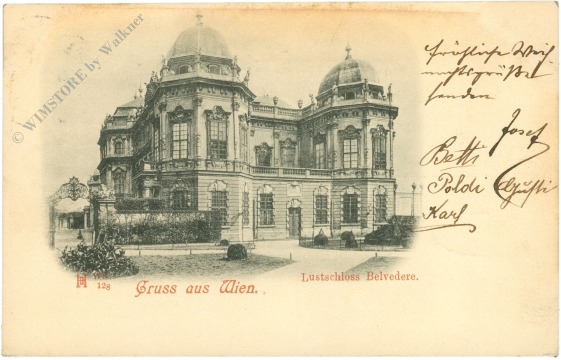 © WIMSTORE by Walkner
fröhliche Weih-
nachtsgrüße
senden
Josef
Betti
Poldi Gusti
Karl
128
Gruss aus Wien.
Lustschloss Belvedere.